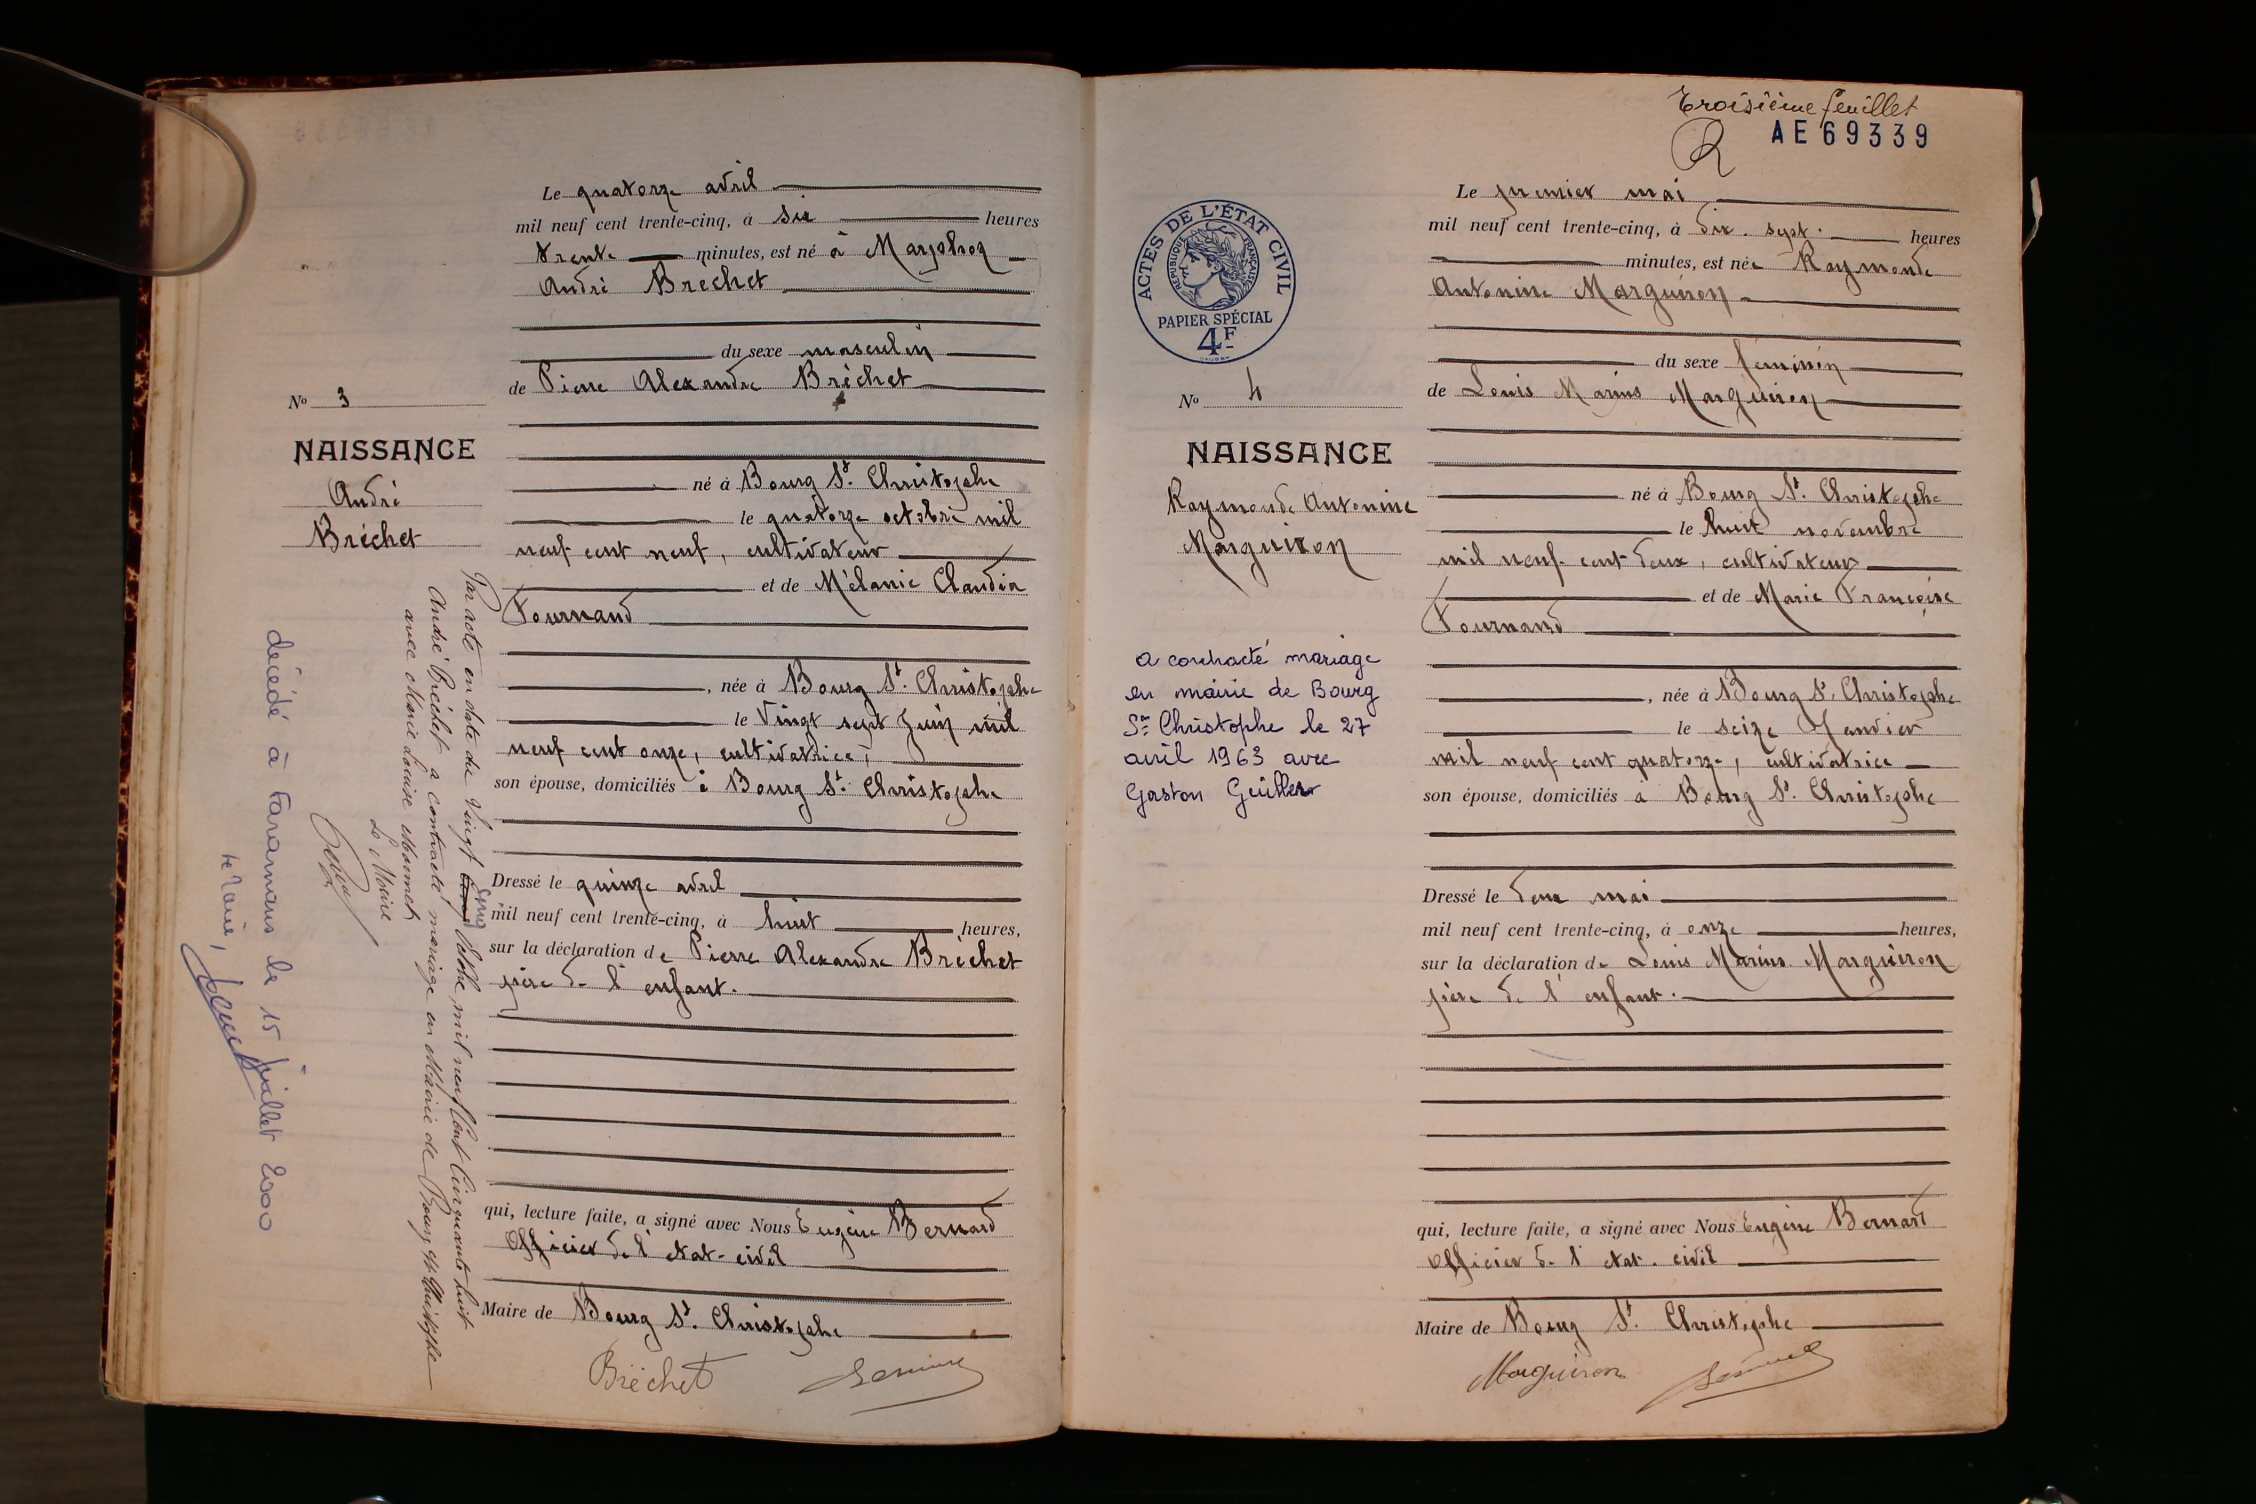 Le quatorze avril
mil neuf cent trente-cinq, à six heures
trente minutes, est né à Marfhoz
André Bréchet
du sexe masculin
de Pierre Alexandre Bréchet
No 3
NAISSANCE
André
Bréchet
né à Bourg St. Christophe
le quatorze octobre mil
neuf cent neuf, cultivateur
et de Mélanie Claudia
Fournand
, née à Bourg St. Christophe
le Vingt sept Juin mil
neuf cent onze, cultivatrice,
son épouse, domiciliés à Bourg St. Christophe
Dressé le quinze avril
mil neuf cent trente-cinq, à huit heures,
sur la déclaration de Pierre Alexandre Bréchet
père de l'enfant.
qui, lecture faite, a signé avec Nous Eugène Bernard
Officier de l'etat-civil
Maire de Bourg St. Christophe
Bréchet
Par acte en date du Vingt Cinq Octobre mil neuf Cent Cinquante huit
André Bréchet a contracté mariage en Mairie de Bourg St Christophe
avec Marie Louise
Le Maire
décédé à Faramans le 15 juillet 2000
le Maire,
Troisième feuillet
AE69339
ACTES DE L'ÉTAT CIVIL
RÉPUBLIQUE FRANÇAISE
PAPIER SPÉCIAL
4F
Le premier mai
mil neuf cent trente-cinq, à dix. sept. heures
minutes, est née Raymonde
Antonine Marguiron
du sexe féminin
de Louis Marius Marguiron
No 4
NAISSANCE
Raymonde Antonine
Marguiron
né à Bourg St. Christophe
le huit novembre
mil neuf cent deux, cultivateur
et de Marie Françoise
Fournand
, née à Bourg St. Christophe
le seize Janvier
mil neuf cent quatorze, cultivatrice
son épouse, domiciliés à Bourg St. Christophe
a contracté mariage
en mairie de Bourg
St Christophe le 27
avril 1963 avec
Gaston
Dressé le deux mai
mil neuf cent trente-cinq, à onze heures,
sur la déclaration de Louis Marius Marguiron
père de l'enfant.
qui, lecture faite, a signé avec Nous Eugène Bernard
Officier de l'etat. civil
Maire de Bourg St. Christophe
Marguiron